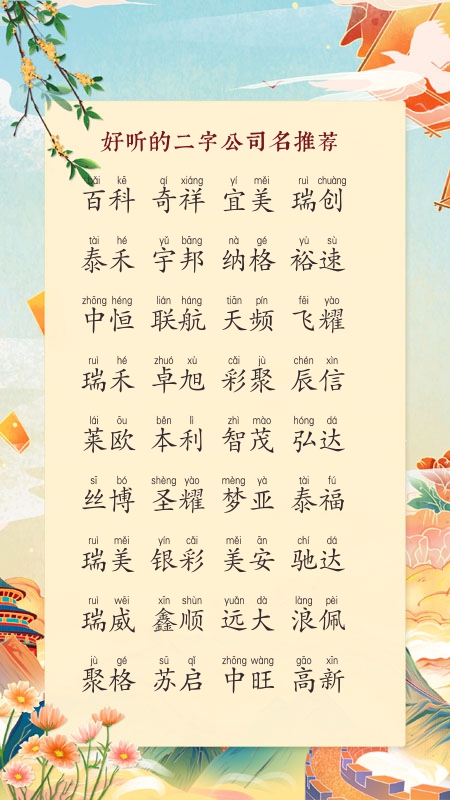 好听的二字公司名推荐
bǎi kē qí xiáng yí měi ruì chuàng
百科 奇祥 宜美 瑞创
tài hé yǔ bāng nà gé yù sù
泰禾 宇邦 纳格 裕速
zhōng héng lián háng tiān pín fēi yào
中恒 联航 天频 飞耀
ruì hé zhuó xù cǎi jù chén xìn
瑞禾 卓旭 彩聚 辰信
lái ōu běn lì zhì mào hóng dá
莱欧 本利 智茂 弘达
sī bó shèng yào mèng yà tài fú
丝博 圣耀 梦亚 泰福
ruì měi yín cǎi měi ān chí dá
瑞美 银彩 美安 驰达
ruì wēi xīn shùn yuǎn dà làng pèi
瑞威 鑫顺 远大 浪佩
jù gé sū qǐ zhōng wàng gāo xīn
聚格 苏启 中旺 高新